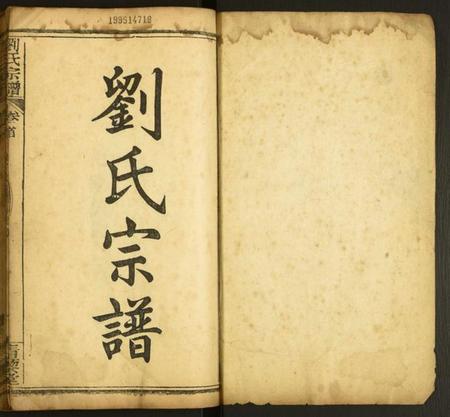 199514718
劉氏宗譜
劉氏宗譜
卷首